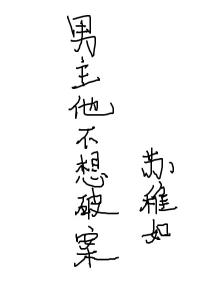 男主他不想破案
苏稚如